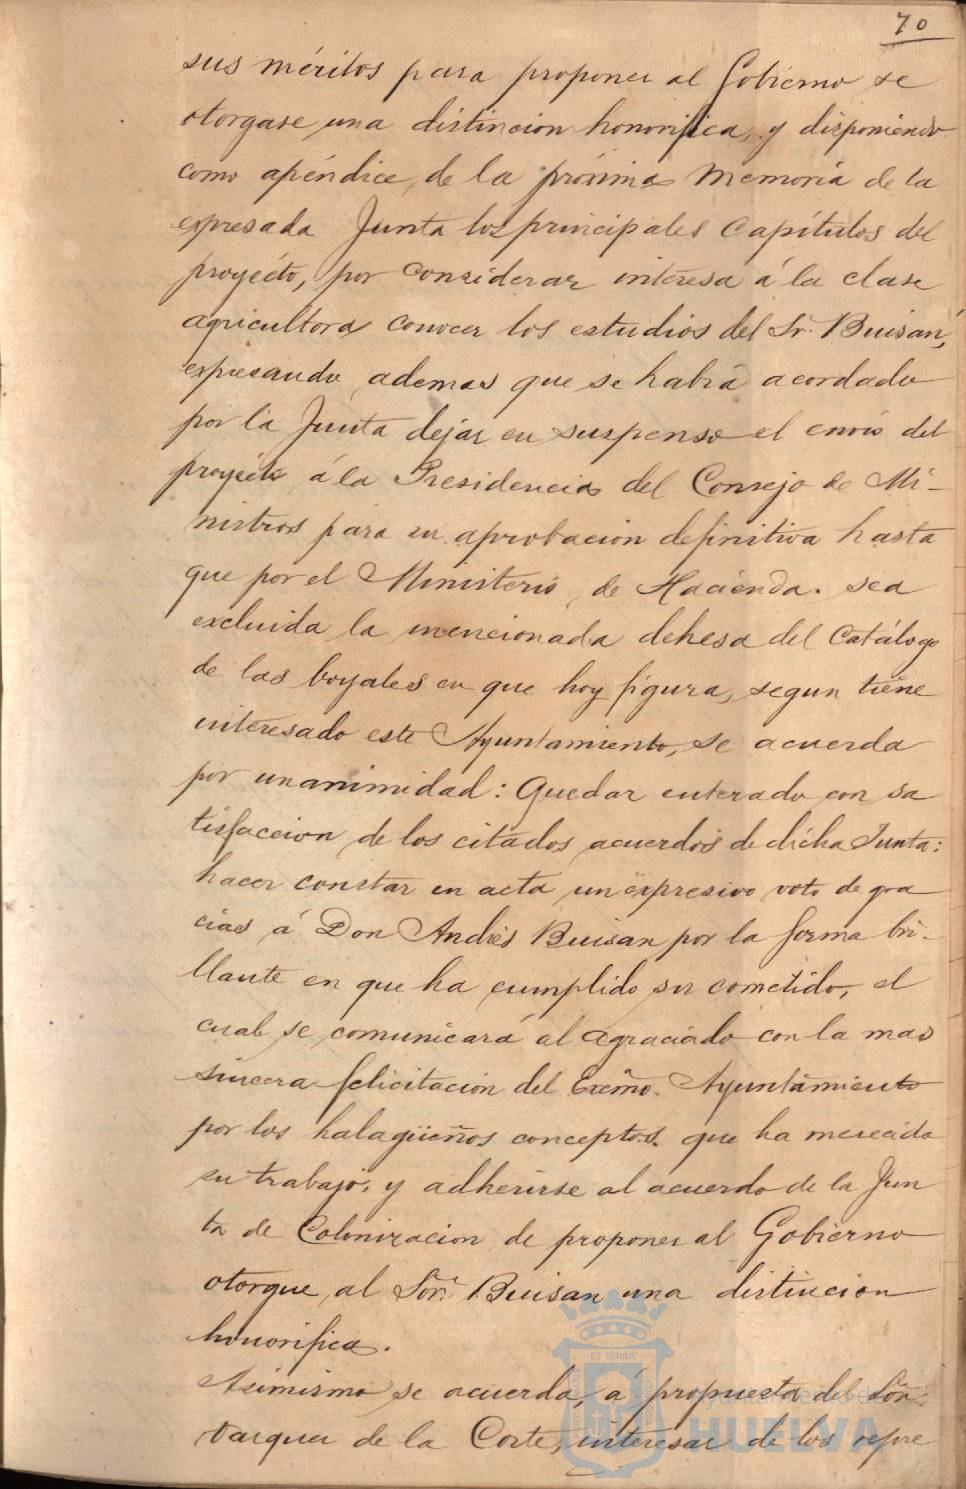 70
sus méritos para proponer al Gobierno se
otorgase una distincion honorifica, y disponiendo
como apéndice de la próxima Memoria de la
expresada Junta los principales Capítulos del
proyécto, por considerar interesa á la clase
agricultora conocer los estudios del Sr. Buisan,
expresando ademas que se habia acordado
por la Junta dejar en suspenso el envio del
proyécto á la Presidencia del Consejo de Mi-
nistros para su aprobacion definitiva hasta
que por el Ministerio de Hacienda. sea
excluida la mencionada dehesa del Catálogo
de las boyales en que hoy figura, segun tiene
interesado este Ayuntamiento, se acuerda
por unanimidad: Quedar enterado con sa
tisfaccion de los citados acuerdos de dicha Junta:
hacer constar en acta un expresivo voto de gra
cias á Don Andrés Buisan por la forma bri-
llante en que ha cumplido su cometido, el
cual se comunicará al agraciado con la mas
sincera felicitación del Excmo. Ayuntamiento
por los halagüeños conceptos. que ha merecido
su trabajo, y adherirse al acuerdo de la Jun
ta de Colonizacion de proponer al Gobierno
otorgue al Sor. Buisan una distincion
honorifica.
Asimismo se acuerda, á propuesta del Sor.
Vazquez de la Corte, interesar de los repre
ET TERRÆ
Ayuntamiento de
HUELVA